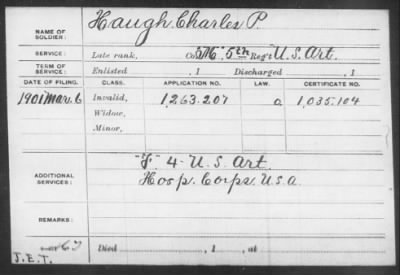 NAME OF SOLDIER: Haugh, Charles P.
SERVICE: Late rank, Co. "M" 5th Reg't U.S. Art.
TERM OF SERVICE: Enlisted , 1 Discharged , 1
DATE OF FILING. CLASS. APPLICATION NO. LAW. CERTIFICATE NO.
1901 Mar. 6 Invalid, 1,263.207 a 1,035.104
Widow,
Minor,
ADDITIONAL SERVICES: 4 - U.S. Art.
Hosp. Corps, U.S.A.
REMARKS:
Died , 1 , at
J.E.T.